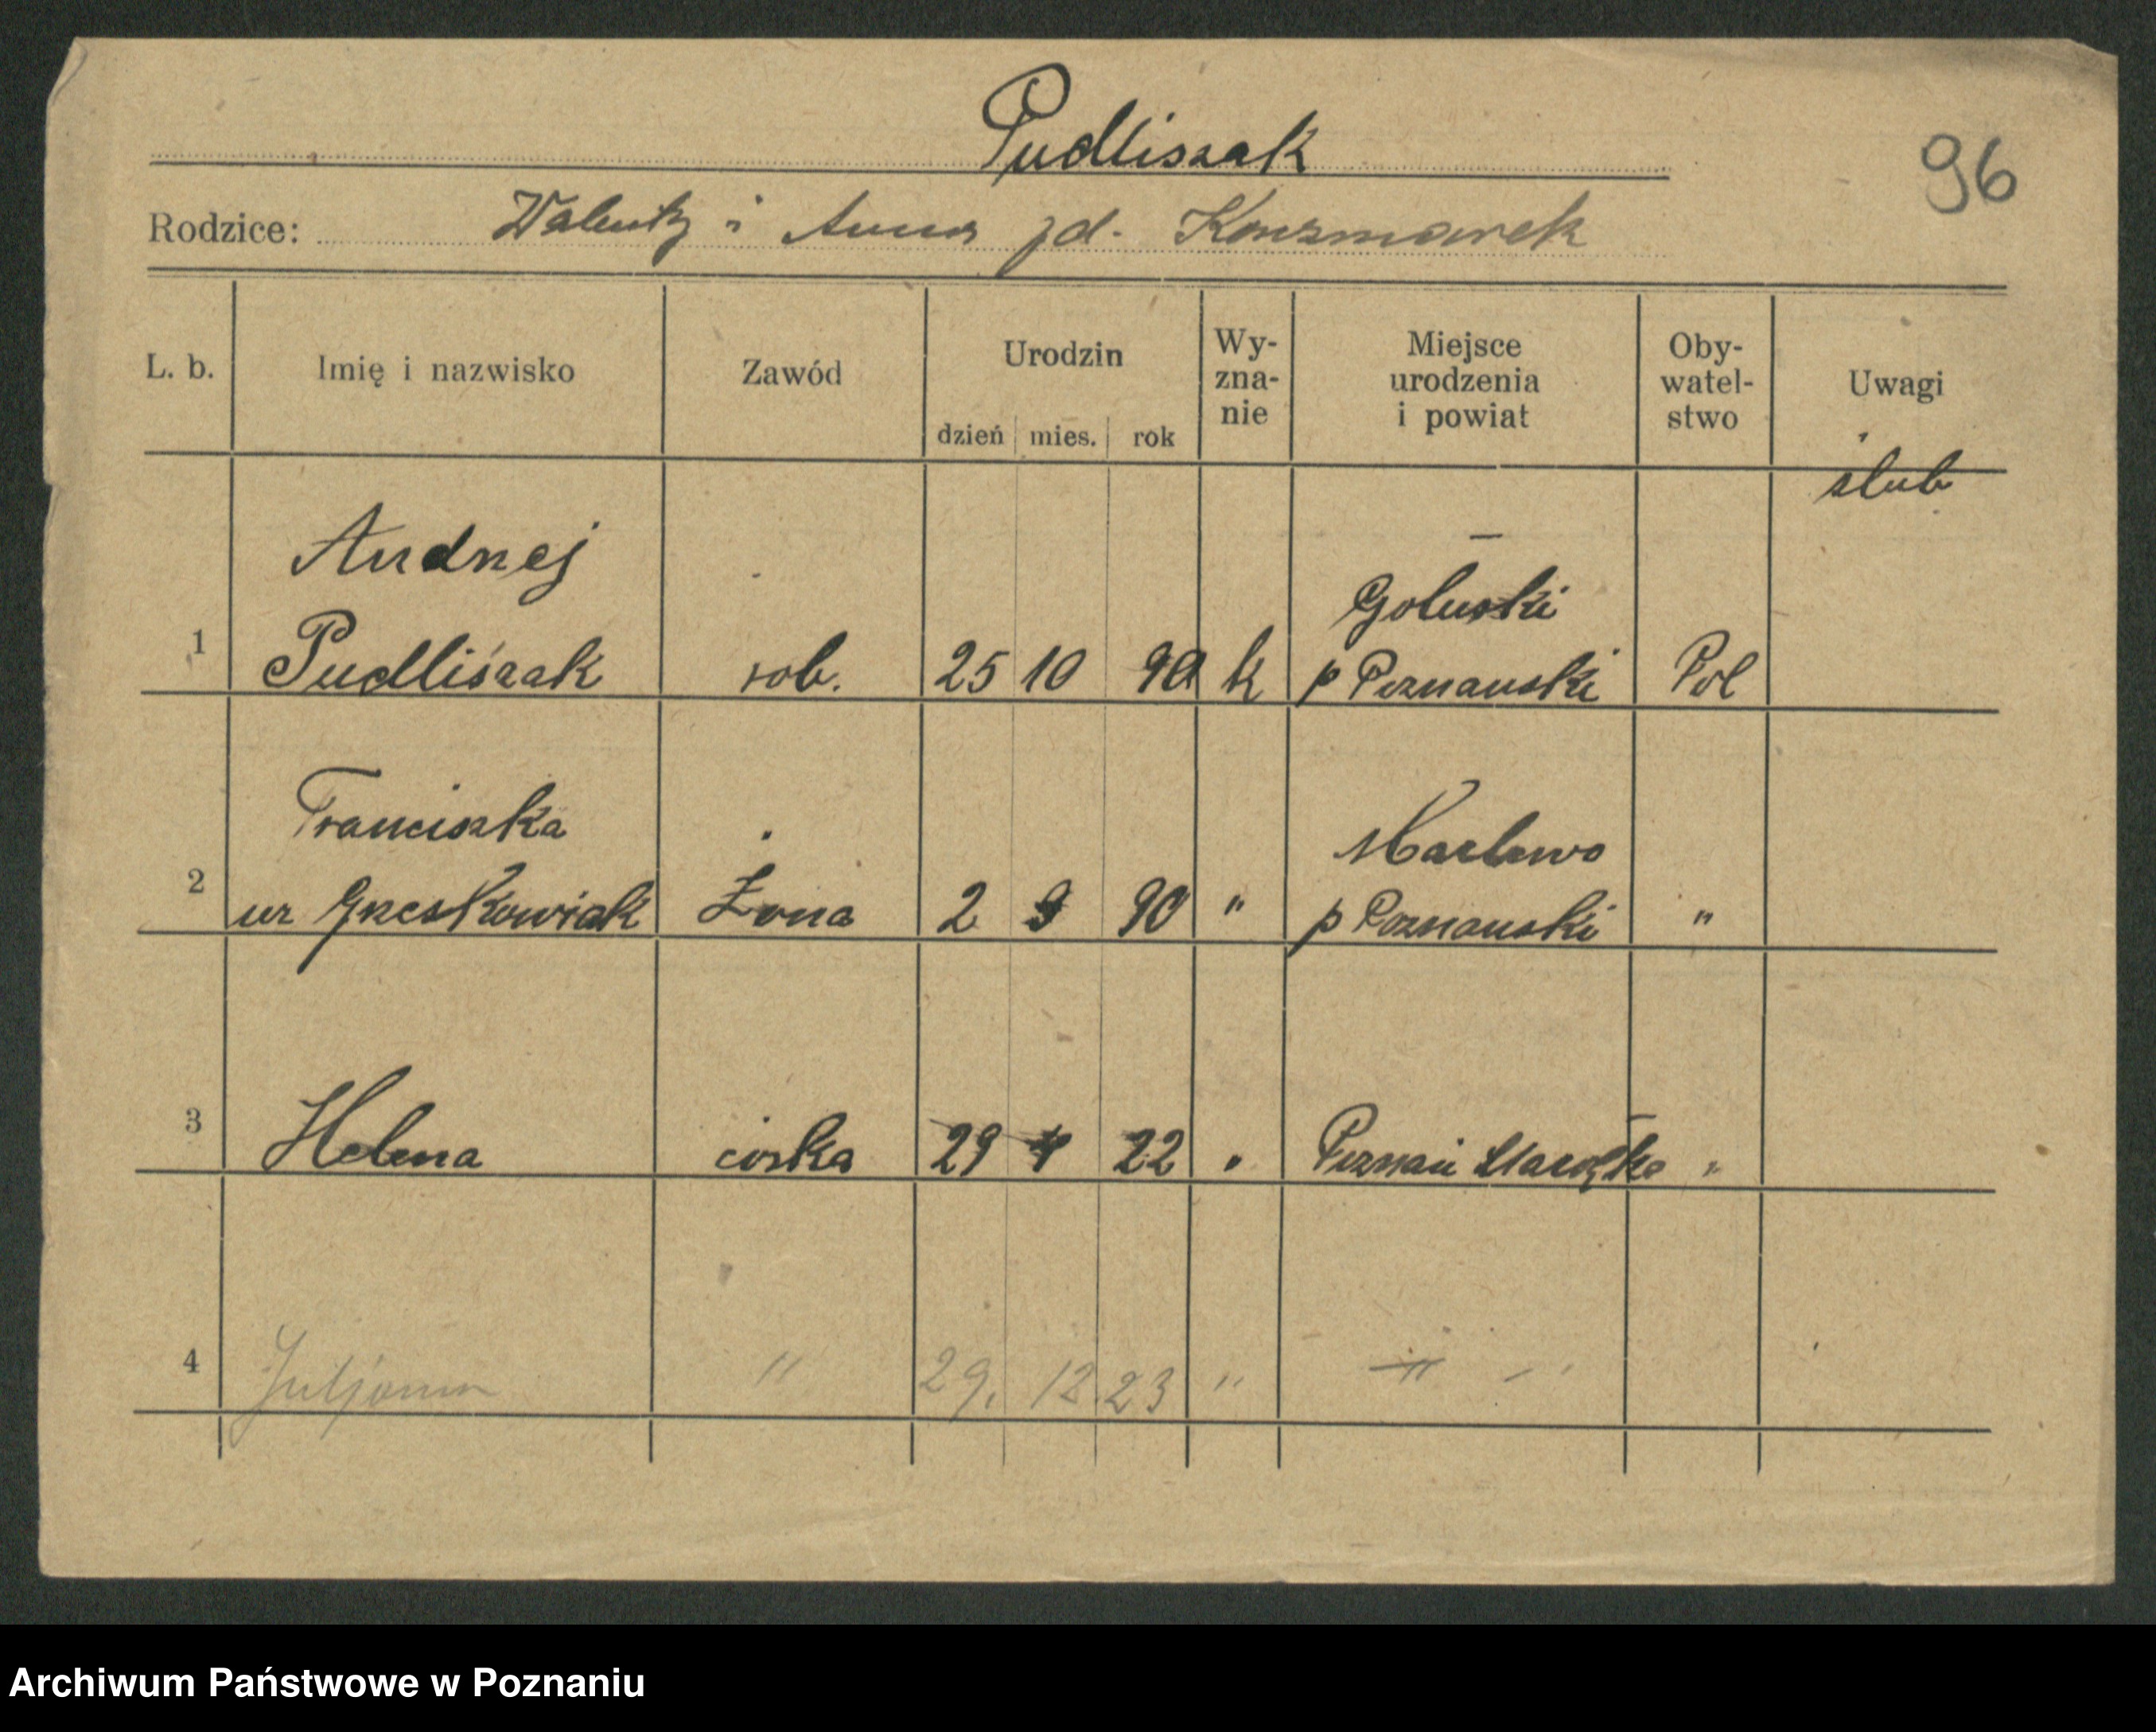 Pudliszak
96
Rodzice: Walenty i Anna zd. Konzmarek
L. b. Imię i nazwisko Zawód Urodzin dzień mies. rok Wy-zna-nie Miejsce urodzenia i powiat Oby-watel-stwo Uwagi
ślub
Andrzej
Gołuski
1 Pudliszak rob. 25 10 90 k p Poznański Pol
Franciszka
Marlewo
2 ur Grześkowiak Żona 2 9 90 " p Poznański "
3 Helena córka 29 4 22 " Poznań Starołęka "
4 Juljanna " 29. 12. 23 " " "
Archiwum Państwowe w Poznaniu